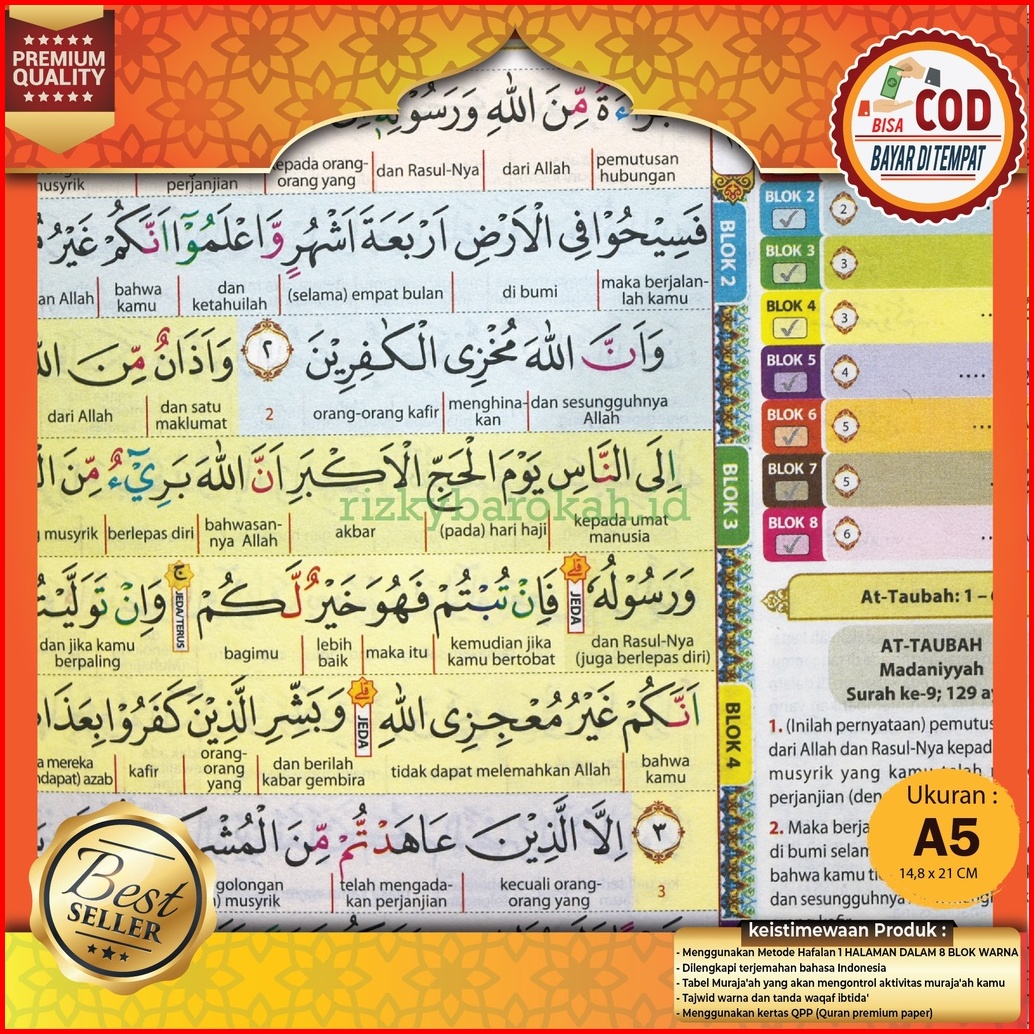 PREMIUM
QUALITY
BISA COD
BAYAR DI TEMPAT
مِّنَ اللّٰهِ وَرَسُوْلِهٖٓ
musyrik
perjanjian
kepada orang-
orang yang
dan Rasul-Nya
dari Allah
pemutusan
hubungan
فَسِيْحُوْا فِى الْاَرْضِ اَرْبَعَةَ اَشْهُرٍ وَّاعْلَمُوْٓا اَنَّكُمْ غَيْرُ
an Allah
bahwa
kamu
dan
ketahuilah
(selama) empat bulan
di bumi
maka berjalan-
lah kamu
وَاَنَّ اللّٰهَ مُخْزِى الْكٰفِرِيْنَ ٢ وَاَذَانٌ مِّنَ
dari Allah
dan satu
maklumat
2
orang-orang kafir
menghina-
kan
dan sesungguhnya
Allah
اِلَى النَّاسِ يَوْمَ الْحَجِّ الْاَكْبَرِ اَنَّ اللّٰهَ بَرِيْۤءٌ مِّنَ
rizkybarokah.id
musyrik
berlepas diri
bahwasan-
nya Allah
akbar
(pada) hari haji
kepada umat
manusia
وَرَسُوْلُهٗ ۗ فَاِنْ تُبْتُمْ فَهُوَ خَيْرٌ لَّكُمْ ۚ وَاِنْ تَوَلَّيْتُ
JEDA
JEDA/TERUS
dan jika kamu
berpaling
bagimu
lebih
baik
maka itu
kemudian jika
kamu bertobat
dan Rasul-Nya
(juga berlepas diri)
اَنَّكُمْ غَيْرُ مُعْجِزِى اللّٰهِ ۗ وَبَشِّرِ الَّذِيْنَ كَفَرُوْا بِعَذَا
JEDA
a mereka
ndapat) azab
kafir
orang-
orang
yang
dan berilah
kabar gembira
tidak dapat melemahkan Allah
bahwa
kamu
٣ اِلَّا الَّذِيْنَ عَاهَدْتُّمْ مِّنَ الْمُشْ
golongan
) musyrik
telah mengada-
kan perjanjian
kecuali orang-
orang yang
3
BLOK 2
BLOK 3
BLOK 4
BLOK 2
2
BLOK 3
3
BLOK 4
3
BLOK 5
4
BLOK 6
5
BLOK 7
5
BLOK 8
6
At-Taubah: 1 –
AT-TAUBAH
Madaniyyah
Surah ke-9; 129 ay
1. (Inilah pernyataan) pemutus
dari Allah dan Rasul-Nya kepad
musyrik yang kamu telah
perjanjian (den
2. Maka berja
di bumi selam
bahwa kamu ti
dan sesungguhnya
Ukuran :
A5
14,8 x 21 CM
Best
SELLER
keistimewaan Produk :
- Menggunakan Metode Hafalan 1 HALAMAN DALAM 8 BLOK WARNA
- Dilengkapi terjemahan bahasa Indonesia
- Tabel Muraja'ah yang akan mengontrol aktivitas muraja'ah kamu
- Tajwid warna dan tanda waqaf ibtida'
- Menggunakan kertas QPP (Quran premium paper)